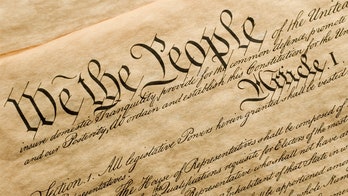 We the People of the United
insure domestic Tranquility, provide for the common defence, promote
and our Posterity, do ordain and establish this Constitution for the Uni
Article. I.
Section. 1. All legislative Powers herein granted shall be vested
Representatives.
The House of Representatives shall be composed of
Qualifications requisite for Electors of the most
who shall not have at
Inhabitant of that State in w